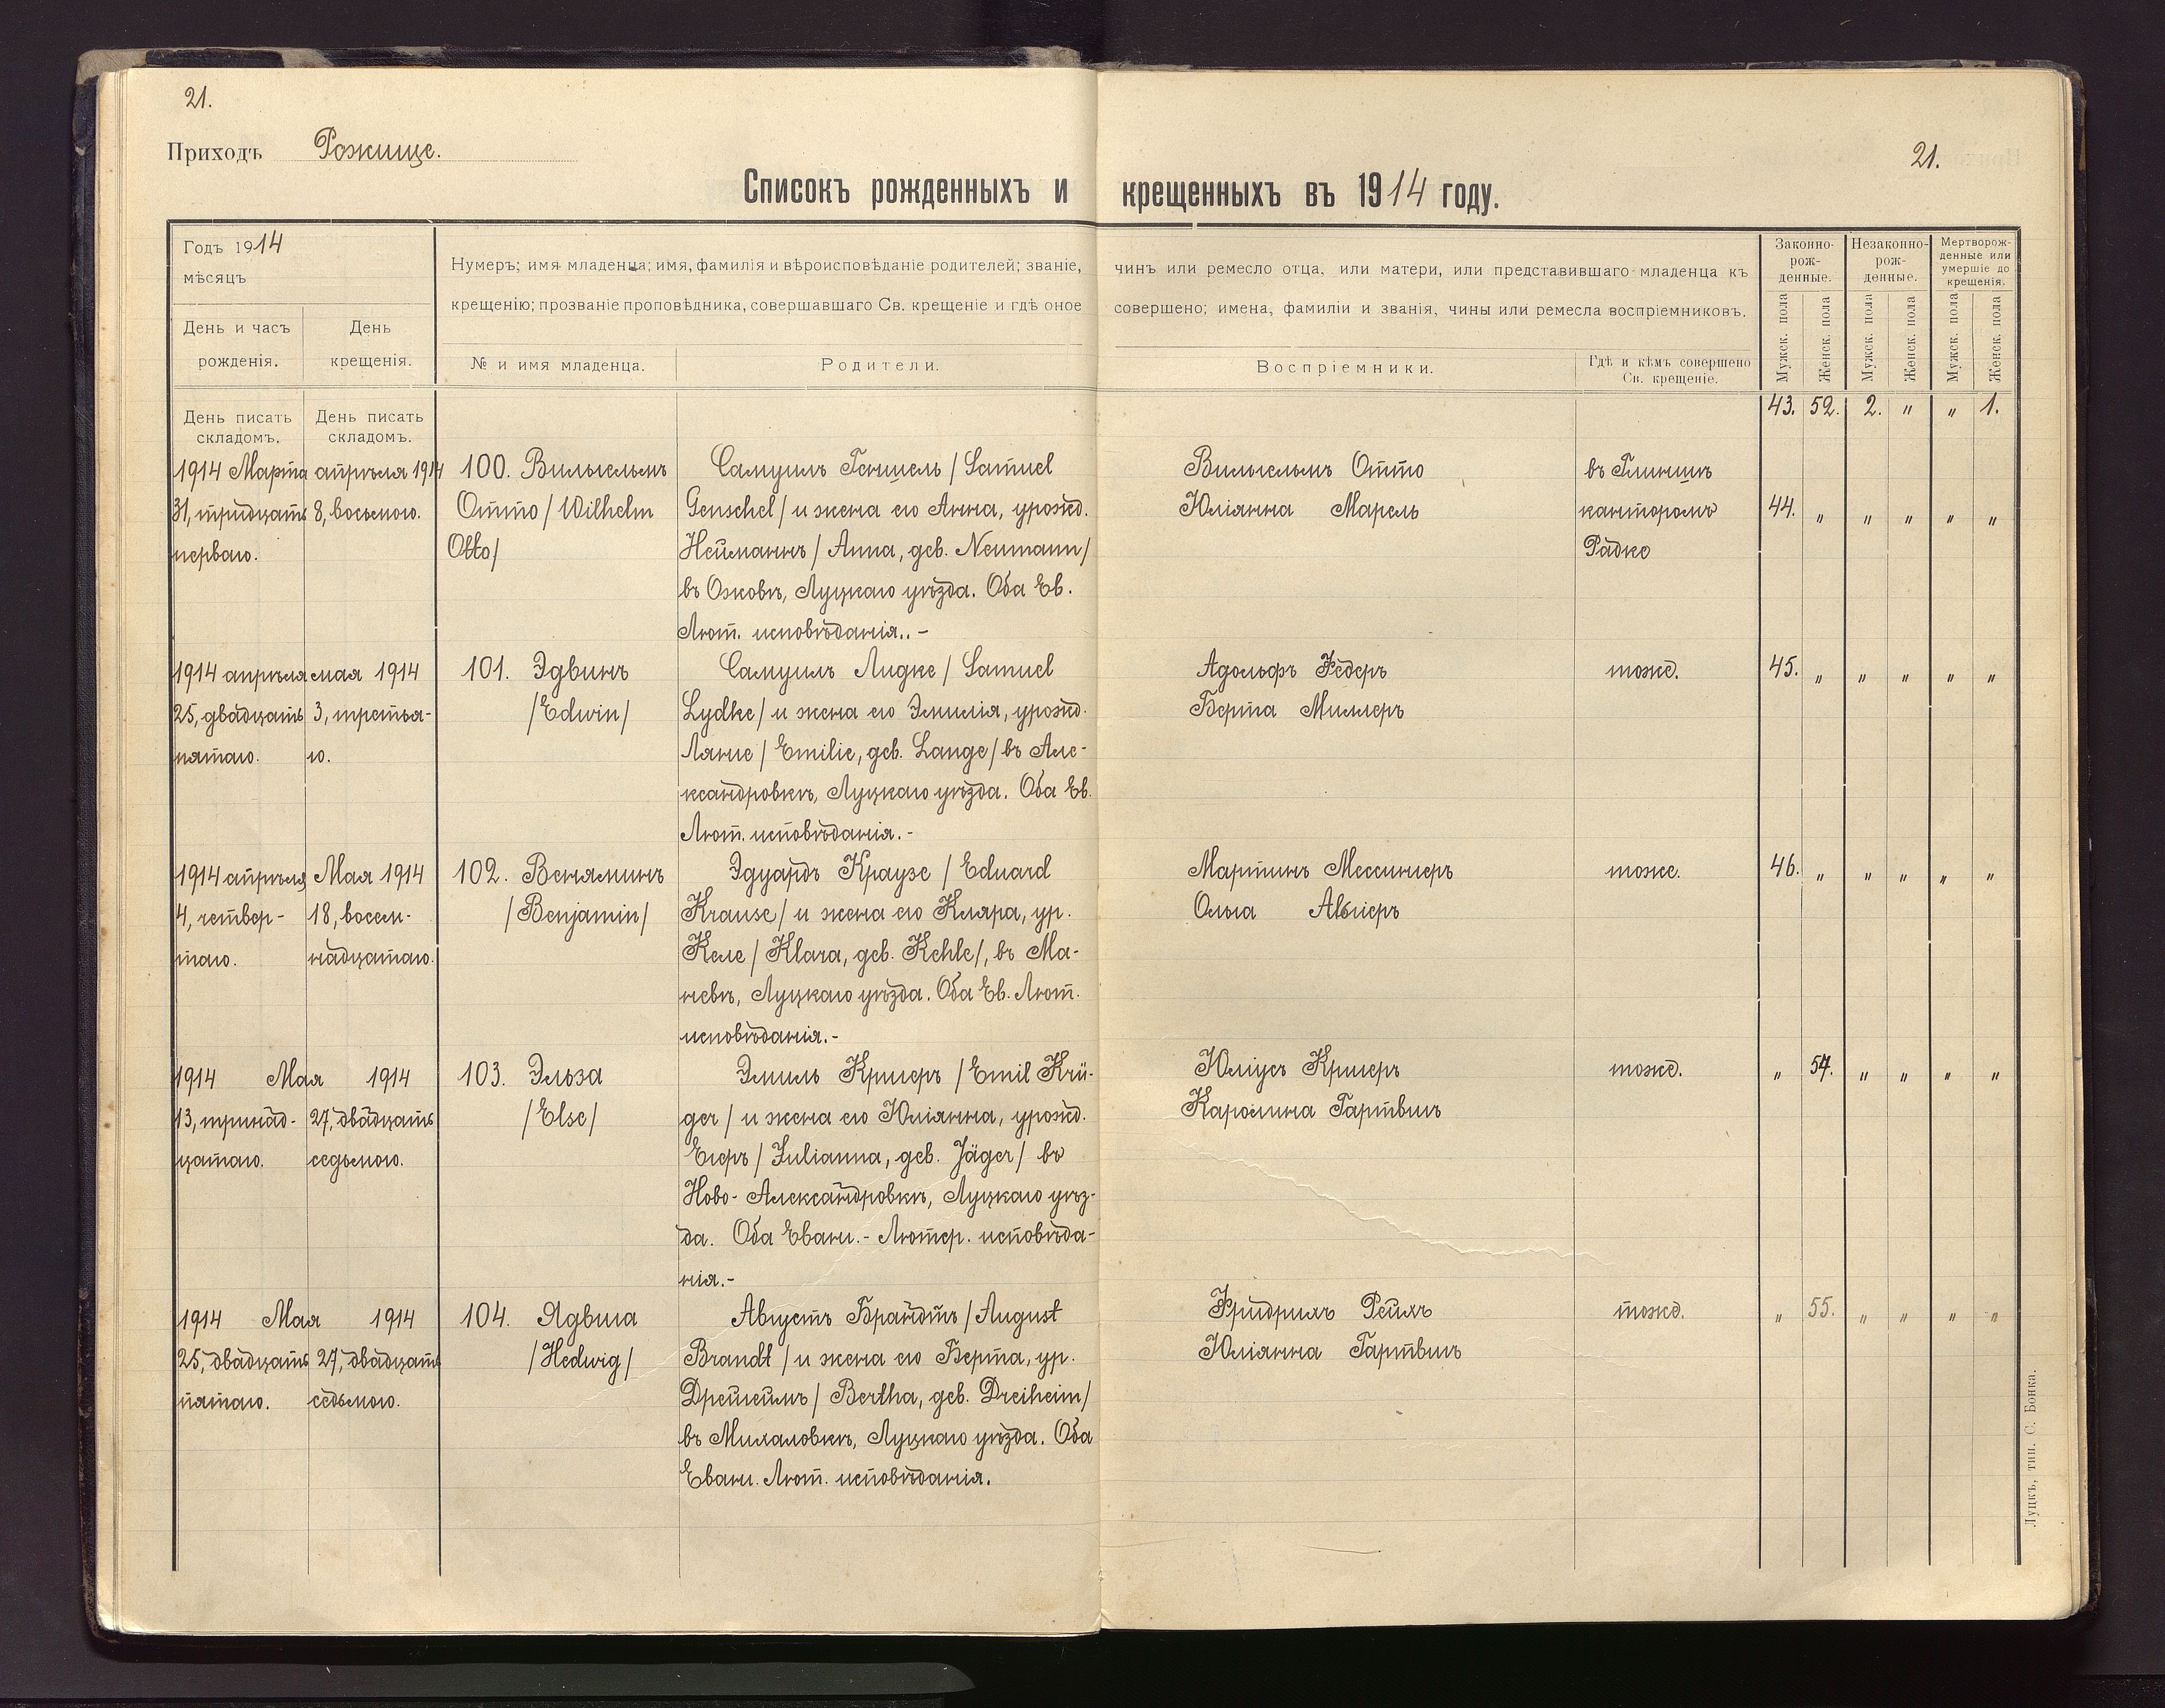 21.
Приходъ Рожище.
21.
Списокъ рожденныхъ и крещенныхъ въ 1914 году.
Годъ 1914
мѣсяцъ
День и часъ рожденія.
День крещенія.
Нумеръ; имя младенца; имя, фамилія и вѣроисповѣданіе родителей; званіе, чинъ или ремесло отца, или матери, или представившаго младенца къ
крещенію; прозваніе проповѣдника, совершавшаго Св. крещеніе и гдѣ оное совершено; имена, фамиліи и званія, чины или ремесла воспріемниковъ.
№ и имя младенца.
Родители.
Воспріемники.
Гдѣ и кѣмъ совершено
Св. крещеніе.
Законно-
рож-
денные.
Незаконно-
рож-
денные.
Мертворож-
денные или
умершіе до
крещенія.
Мужск. пола
Женск. пола
Мужск. пола
Женск. пола
Мужск. пола
Женск. пола
День писать
складомъ.
День писать
складомъ.
43. 52. 2. " " 1.
1914 Марта
31, тридцать
перваго.
апрѣля 1914
8, восьмого.
100. Вильгельмъ
Отто / Wilhelm
Otto/
Самуилъ Геншель / Samuel
Genschel/ и жена его Анна, урожд.
Нейманнъ / Anna, geb. Neumann/
въ Ожовѣ, Луцкаго уѣзда. Оба Ев.
Лют. исповѣданія.. -
Вильгельмъ Отто
Юліанна Марель
въ Глинищѣ
канторомъ
Радке
44. " " " " "
1914 апрѣля
25, двадцать
пятаго.
мая 1914
3, третья-
го.
101. Эдвинъ
/Edwin/
Самуилъ Лидке / Samuel
Lydke/ и жена его Эмилія, урожд.
Лянге / Emilie, geb. Lange/ въ Але-
ксандровкѣ, Луцкаго уѣзда. Оба Ев.
Лют. исповѣданія.-
Адольфъ Федеръ
Берта Миллеръ
тожд.
45. " " " " "
1914 апрѣля
4, четвер-
таго.
Мая 1914
18, восем-
надцатаго.
102. Веняминъ
/Benjamin/
Эдуардъ Краузе / Eduard
Krause/ и жена его Кляра, ур.
Келе / Klara, geb. Kehle/, въ Ма-
невѣ, Луцкаго уѣзда. Оба Ев. Лют.
исповѣданія.-
Мартинъ Мессингеръ
Ольга
тоже.
46. " " " " "
1914 Мая 1914
13, тринад-
цатаго.
27, двадцать
седьмого.
103. Эльза
/Else/
Эмиль Кригеръ / Emil Krü-
ger / и жена его Юліянна, урожд.
Егеръ / Julianna, geb. Jäger/ въ
Ново-Александровкѣ, Луцкаго уѣз-
да. Оба Еванг.-Лютер. исповѣда-
нія.-
Юліусъ Кригеръ
Каролина Гартвигъ
тожд.
" 54. " " " "
1914 Мая 1914
25, двадцать
пятаго.
27, двадцать
седьмого.
104. Ядвига
/Hedwig/
Августъ Брандтъ / August
Brandt / и жена его Берта, ур.
Дрейгеймъ / Bertha, geb. Dreiheim/
въ Михаловкѣ, Луцкаго уѣзда. Оба
Еванг. Лют. исповѣданія.
Фридрихъ Рейхъ
Юліянна Гартвигъ
тожд.
" 55. " " " "
Луцкъ, тип. С. Бонка.